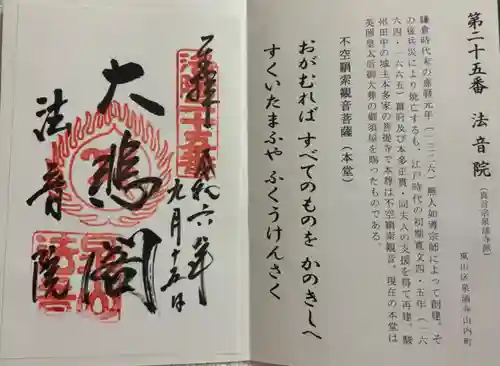 第二十五番 法音院（真言宗泉涌寺派）
東山区泉涌寺山内町
鎌倉時代末の嘉暦元年（一三二六）無人如導宗師によって創建。そ
の後兵災により焼亡するも、江戸時代の初期寛文四・五年（一六
六四・一六六五）幕府及び本多正貫・同夫人の支援を得て再建。駿
州田中の城主本多家の菩提寺で本尊は不空羂索観音。現在の本堂は
英照皇太后御大葬の御須屋を賜ったものである。
不空羂索観音菩薩（本堂）
おがむれば すべてのものを かのきしへ
すくいたまふや ふくうけんさく
奉拝 令和六年
九月十五日
大悲閣
法音院